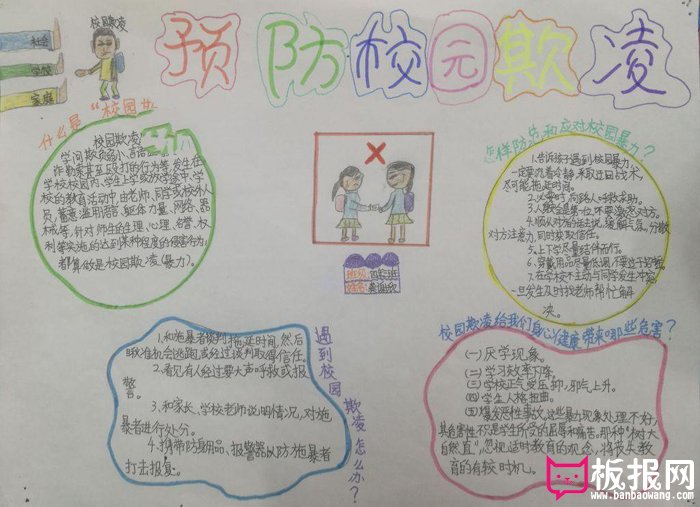 预防校园欺凌
校园欺凌
社会
学校
家庭
什么是"校园
校园欺凌
学间欺负弱小、言语
诈勒索甚至殴打的行为等,发生在
学校校园内、学生上学或放学途中、学
校的教育活动中,由老师、同学或校外人
员,蓄意滥用语言、躯体力量、网络、器
械等,针对师生的生理、心理、名誉、权
利等实施的达到某种程度的侵害行为,
都算做是校园欺凌(暴力)。
班级:四
姓名:
怎样防范和应对校园暴力?
1.告诉孩子遇到校园暴力,
一定要沉着冷静,采取迂回战术,
尽可能拖延时间。
2.必要时,向路人呼救求助。
3.人身安全是第一位,不要激怒对方。
4.顺从对方的话去说,缓解气氛,分散
对方注意力,同时获取信任。
5.上下学尽量结伴而行。
6.穿戴用品尽量低调,不要过于招摇。
7.在学校不主动与同学发生冲突,
一旦发生及时找老师帮忙解
决。
遇到校园欺凌怎么办?
1.和施暴者谈判拖延时间,然后
瞅准机会逃跑或经过谈判取得信任。
2.看见有人经过要大声呼救或报
警。
3.和家长、学校老师说明情况,对施
暴者进行处分。
4.携带防身用品、报警器以防施暴者
打击报复。
校园欺凌给我们身心健康带来哪些危害?
(一)厌学现象。
(二)学习效率下降。
(三)学校正气受压抑,邪气上升。
(四)学生人格扭曲。
(五)爆发恶性事故,这些暴力现象处理不好,
其危害性不只是学生所受的屈辱和痛苦。那种"树大
自然直",忽视适时教育的观念,将丧失教
育的有效时机。
板报网
www.banbaowang.com